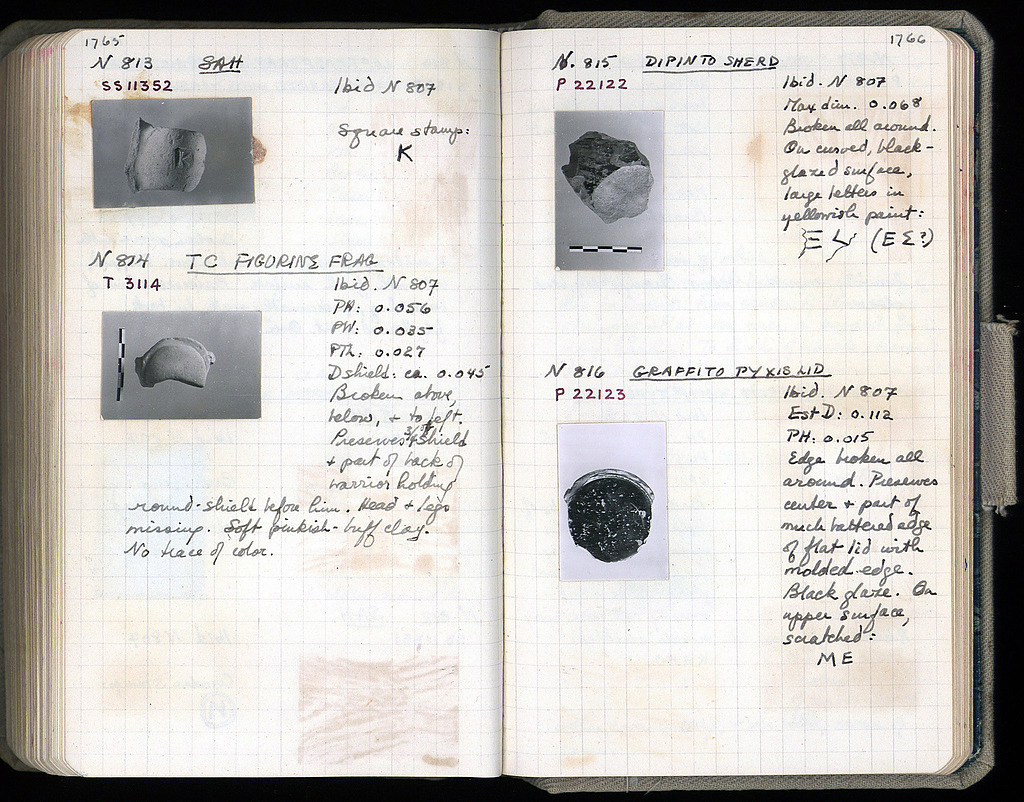 1765
N 813 SAH
SS 11352
Ibid N 807
Square stamp:
K
N 814 TC FIGURINE FRAG
T 3114
Ibid. N 807
PH: 0.056
PW: 0.035
PTh: 0.027
D shield: ca. 0.045
Broken above,
below, + to left.
Preserves 3/4 of shield
+ part of back of
warrior holding
round shield before him. Head + legs
missing. Soft pinkish-buff clay.
No trace of color.
1766
N. 815 DIPINTO SHERD
P 22122
Ibid. N 807
Max dim. 0.068
Broken all around.
On curved, black-
glazed surface,
large letters in
yellowish paint:
(E Σ?)
N 816 GRAFFITO PYXIS LID
P 22123
Ibid. N 807
Est D: 0.112
PH: 0.015
Edge broken all
around. Preserves
center + part of
much battered edge
of flat lid with
molded edge.
Black glaze. On
upper surface,
scratched:
ME